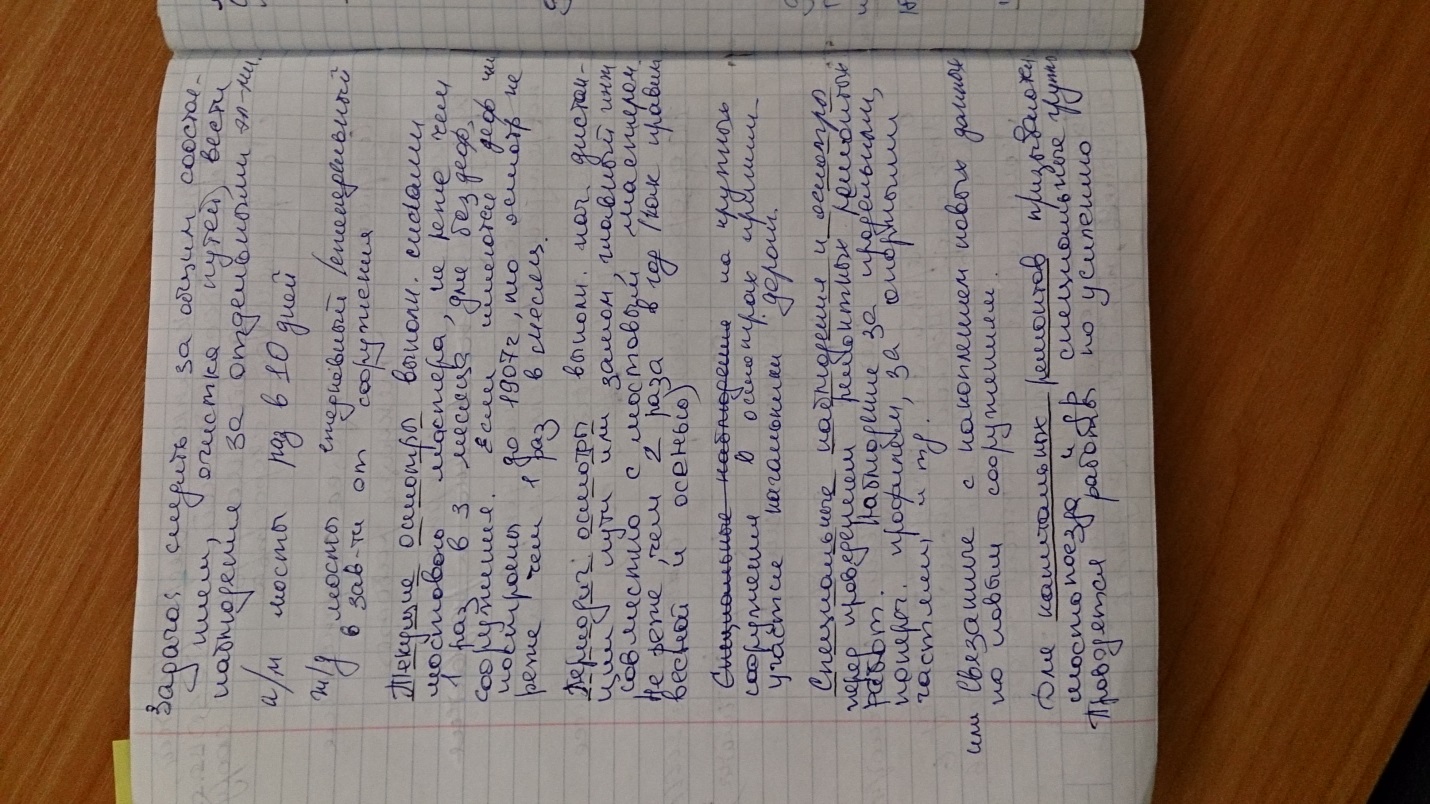 Задача: следить за общим состоя-
нием, очистка путей, вести
наблюдение за отдельными эл-ми.
а/м мосты раз в 10 дней
ж/д мосты ежедневный /ежедневный
в зав-ти от сооружения
Текущие осмотры выполн. силами
мостового мастера, не реже чем
1 раз в 3 месяца, для без деф.
сооружения. Если имеются деф или
построены до 1907г, то осмотр не
реже чем 1 раз в месяц.
Периодич осмотры выполн. нач дистан-
ции пути или замом, главный инж
совместно с мостовым мастером.
Не реже чем 2 раза в год /как правило
весной и осенью)
Специальные наблюдения на крупных
сооружениях в осмотрах приним.
участие начальники дороги.
Специальные наблюдения и осмотры
перед проведением ремонтных ремонтных
работ. Наблюдение за продольным,
попереч. профилем, за опорными
частями, и тд.
или Связанные с накоплением новых данных
по новым сооружениям.
Для капитальных ремонтов
мостопоезда и др специальные группы
Проводятся работы по усилению